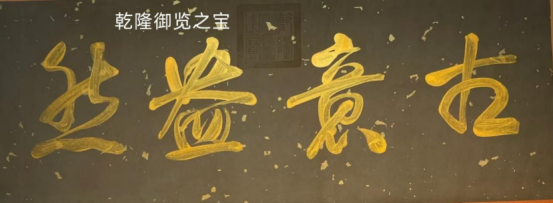 乾隆御览之宝
古意盎然